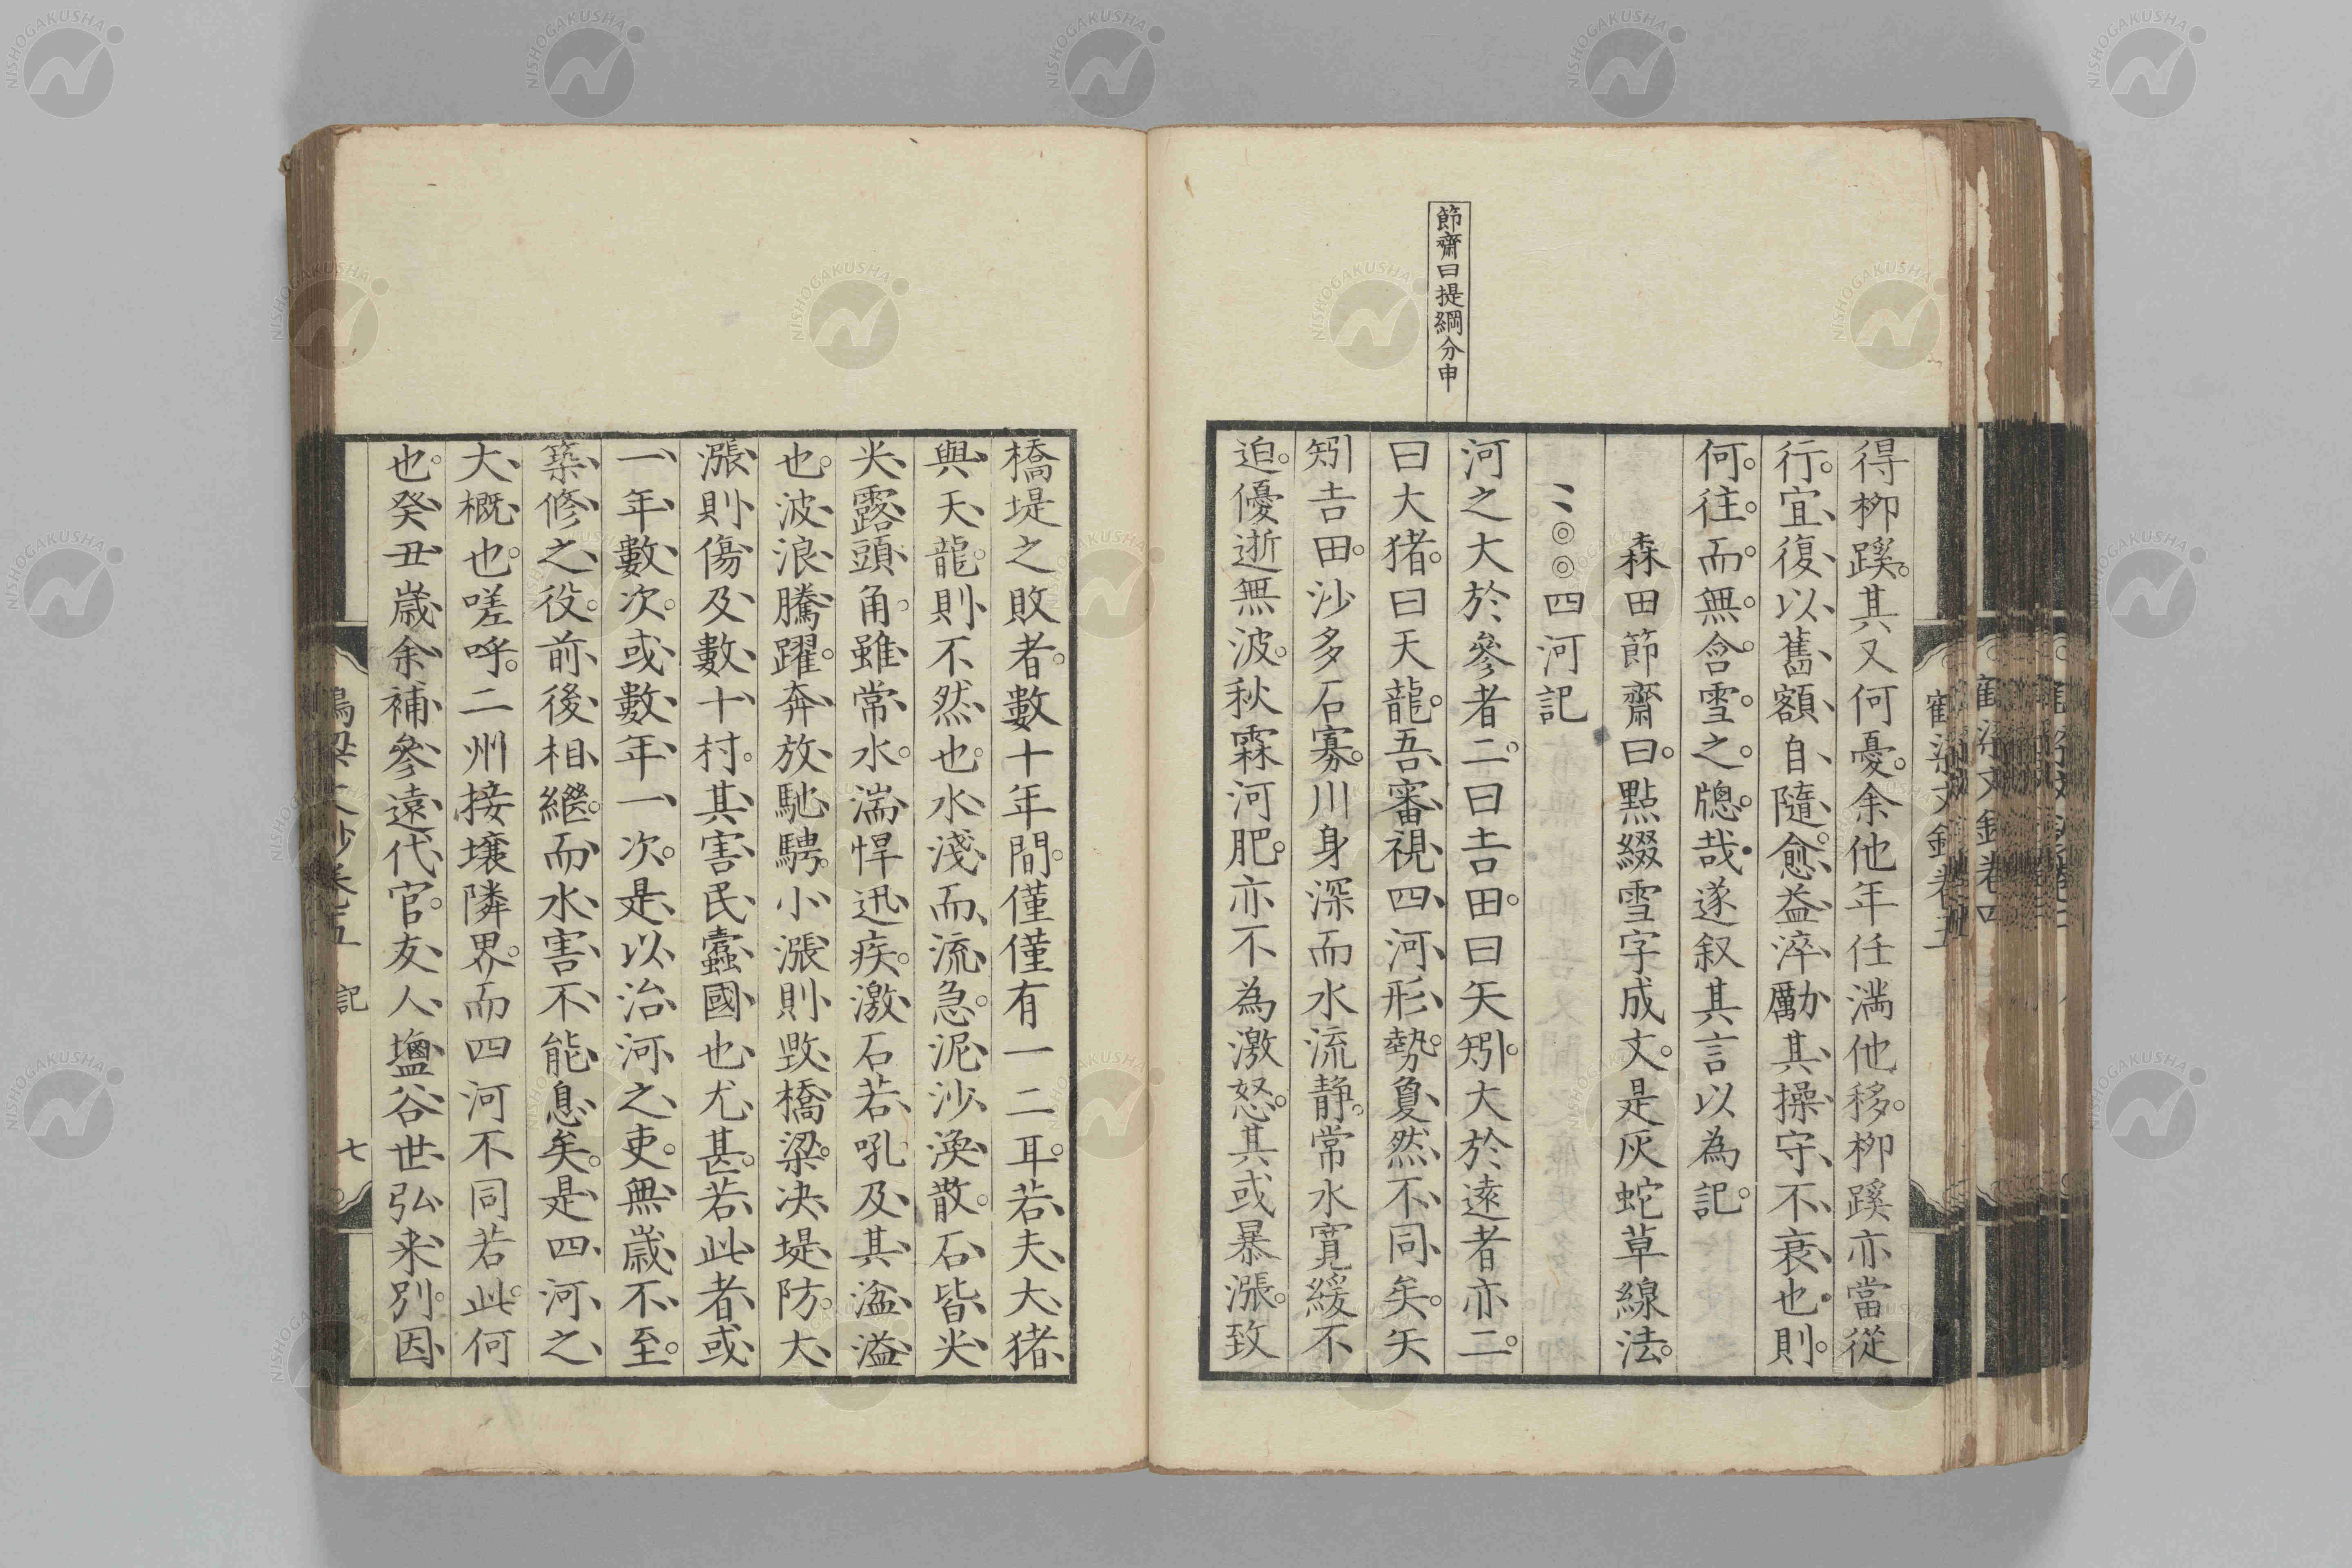 節齋曰提綱分申
得栁蹊其又何憂余他年任満他移栁蹊亦當從
行宜復以舊額自隨愈益淬勵其操守不衰也則
何往而無含雪之牕哉遂叙其言以為記
森田節齋曰點綴雪字成文是灰蛇草線法
四河記
河之大於參者二曰吉田曰矢矧大於遠者亦二
曰大猪曰天龍吾審視四河形勢夐然不同矣矢
矧吉田沙多石寡川身深而水流静常水寛緩不
迫優逝無波秋霖河肥亦不為激怒其或暴漲致
橋堤之敗者數十年間僅僅有一二耳若夫大猪
與天龍則不然也水淺而流急泥沙渙散石皆尖
尖露頭角雖常水湍悍迅疾激石若吼及其湓溢
也波浪騰躍奔放馳騁小漲則毀橋梁决堤防大
漲則傷及數十村其害民蠹國也尤甚若此者或
一年數次或數年一次是以治河之吏無歳不至
築修之役前後相繼而水害不能息矣是四河之
大概也嗟呼二州接壌隣界而四河不同若此何
也癸丑歳余補參遠代官友人鹽谷世弘来別因
記
七